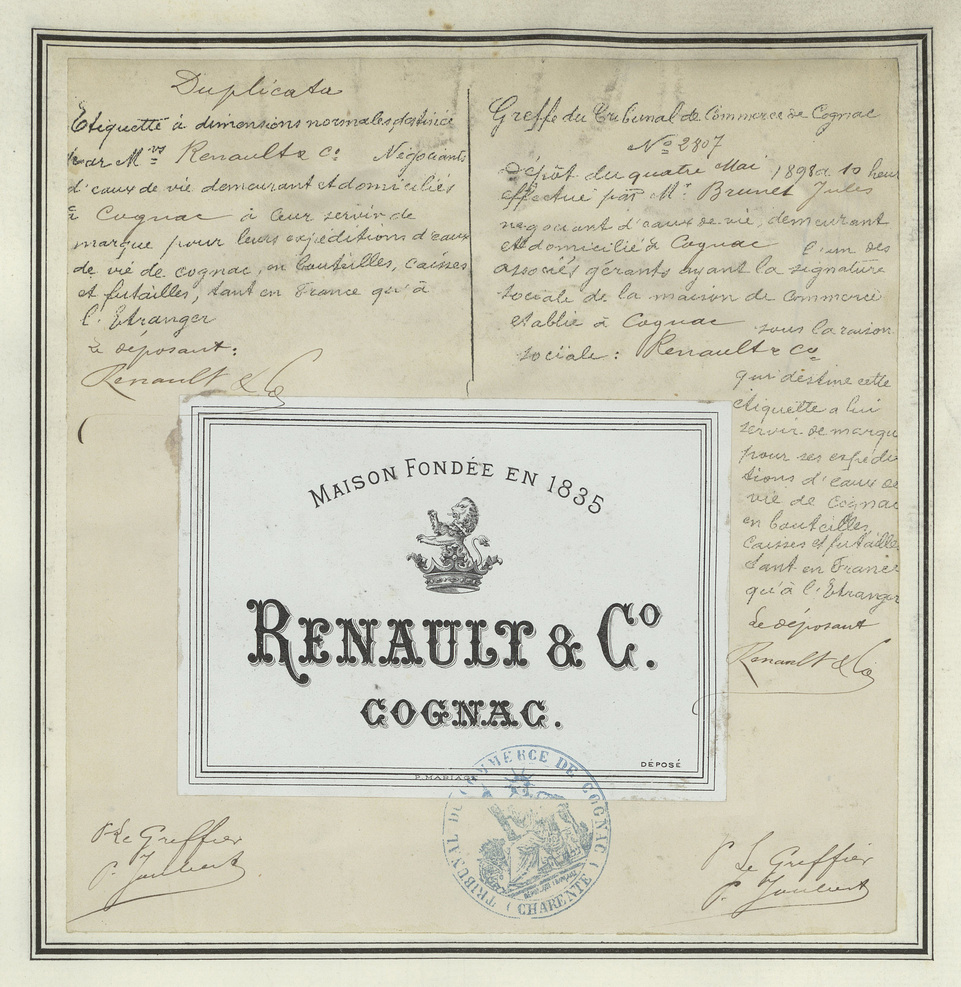 Duplicata
Etiquette à dimensions normales, destinée
par Mrs Renault & Co Négociants
d'eaux de vie demeurant et domiciliés
à Cognac à leur servir de
marque pour leurs expéditions d'eaux
de vie de cognac, en bouteilles, caisses
et futailles, tant en France qu'à
l'Etranger
Le déposant:
Renault & Co
Greffe du Tribunal de Commerce de Cognac
No 2807
Dépôt du quatre Mai 1898 à 10 heur
effectué par Mr Brunet Jules
négociant d'eaux de vie, demeurant
et domicilié à Cognac l'un des
associés gérants ayant la signature
sociale de la maison de Commerce
établie à Cognac sous la raison
sociale: Renault & Co
qui destine cette
étiquette a lui
servir de marque
pour ses expédi
tions d'eaux de
vie de Cognac
en bouteilles,
caisses et futailles
tant en France
qu'à l'Etranger
Le déposant
Renault & Co
MAISON FONDÉE EN 1835
RENAULT & Co.
COGNAC.
DÉPOSÉ
P. MARIAGE
TRIBUNAL DE COMMERCE DE COGNAC
( CHARENTE )
P Le Greffier
P. Joubert
P Le Greffier
P. Joubert